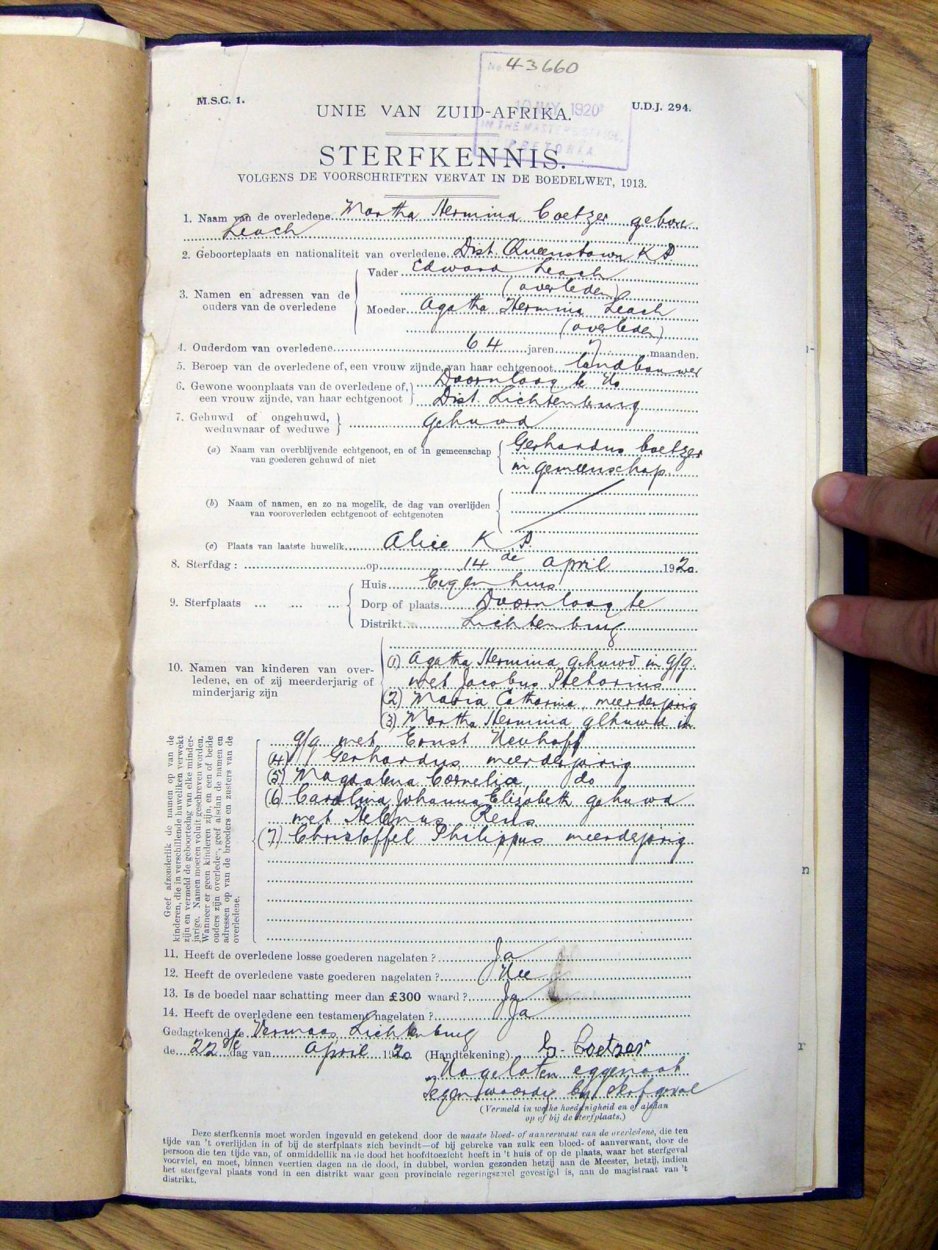 No. 43660
M.S.C. 1.
U.D.J. 294.
UNIE VAN ZUID-AFRIKA.
1920
IN THE MASTER'S
PRETORIA
STERFKENNIS.
VOLGENS DE VOORSCHRIFTEN VERVAT IN DE BOEDELWET, 1913.
1. Naam van de overledene Martha Hermina Coetzer geboren
Leach
2. Geboorteplaats en nationaliteit van overledene Dist. Queenstown K P
3. Namen en adressen van de ouders van de overledene
Vader Edward Leach
(overleden)
Moeder Agatha Hermina Leach
(overleden)
4. Ouderdom van overledene 64 jaren 7 maanden.
5. Beroep van de overledene of, een vrouw zijnde, van haar echtgenoot landbouwer
6. Gewone woonplaats van de overledene of, Doornlaagte
een vrouw zijnde, van haar echtgenoot Dist. Lichtenburg
7. Gehuwd of ongehuwd, weduwnaar of weduwe gehuwd
(a) Naam van overblijvende echtgenoot, en of in gemeenschap Gerhardus Coetzer
van goederen gehuwd of niet in gemeenschap
(b) Naam of namen, en zo na mogelik, de dag van overlijden
van vooroverleden echtgenoot of echtgenoten
(c) Plaats van laatste huwelik Alice K P
8. Sterfdag: op 14 de April 1920
9. Sterfplaats ... ... ...
Huis Eigen huis
Dorp of plaats Doornlaagte
Distrikt Lichtenburg
10. Namen van kinderen van overledene, en of zij meerderjarig of minderjarig zijn
(1) Agatha Hermina gehuwd in g/g.
met Jacobus Pretorius
(2) Maria Catharina, meerderjarig
(3) Martha Hermina gehuwd in
g/g met Ernst Neuhoff
(4) Gerhardus meerderjarig
(5) Magdalena Cornelia do
(6) Carolina Johanna Elizabeth gehuwd
met
(7) Christoffel Philippus meerderjarig
Geef afzonderlik de namen op van de
kinderen, die in verschillende huweliken verwekt
zijn en vermeld de geboortedag van elke minder-
jarige. Namen moeten voluit geschreven worden.
Wanneer er geen kinderen zijn, en een of beide
ouders zijn overleden, geef alsdan de namen en
adressen op van de broeders en zusters van de
overledene.
11. Heeft de overledene losse goederen nagelaten? Ja
12. Heeft de overledene vaste goederen nagelaten? Nee
13. Is de boedel naar schatting meer dan £300 waard? Ja
14. Heeft de overledene een testament nagelaten? Ja
Gedagtekend te Vermaas Lichtenburg
de 22ste dag van April 1920 (Handtekening) G. Coetzer
Nagelaten eggenoot
Tegenwoordig bij sterfgeval
(Vermeld in welke hoedanigheid en of alsdan
op of bij de sterfplaats.)
Deze sterfkennis moet worden ingevuld en getekend door de naaste bloed- of aanverwant van de overledene, die ten
tijde van 't overlijden in of bij de sterfplaats zich bevindt—of bij gebreke van zulk een bloed- of aanverwant, door de
persoon die ten tijde van, of onmiddellik na de dood het hoofdtoezicht heeft in 't huis of op de plaats, waar het sterfgeval
voorviel, en moet, binnen veertien dagen na de dood, in dubbel, worden gezonden hetzij aan de Meester, hetzij, indien
het sterfgeval plaats vond in een distrikt waar geen provinciale regeringszetel gevestigd is, aan de magistraat van 't
distrikt.